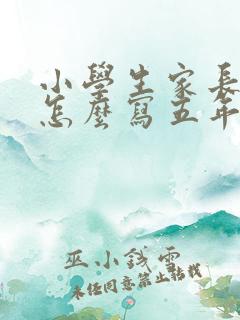 小學生家長
怎麼寫五年
巫小錢雲
未經同意禁止轉載